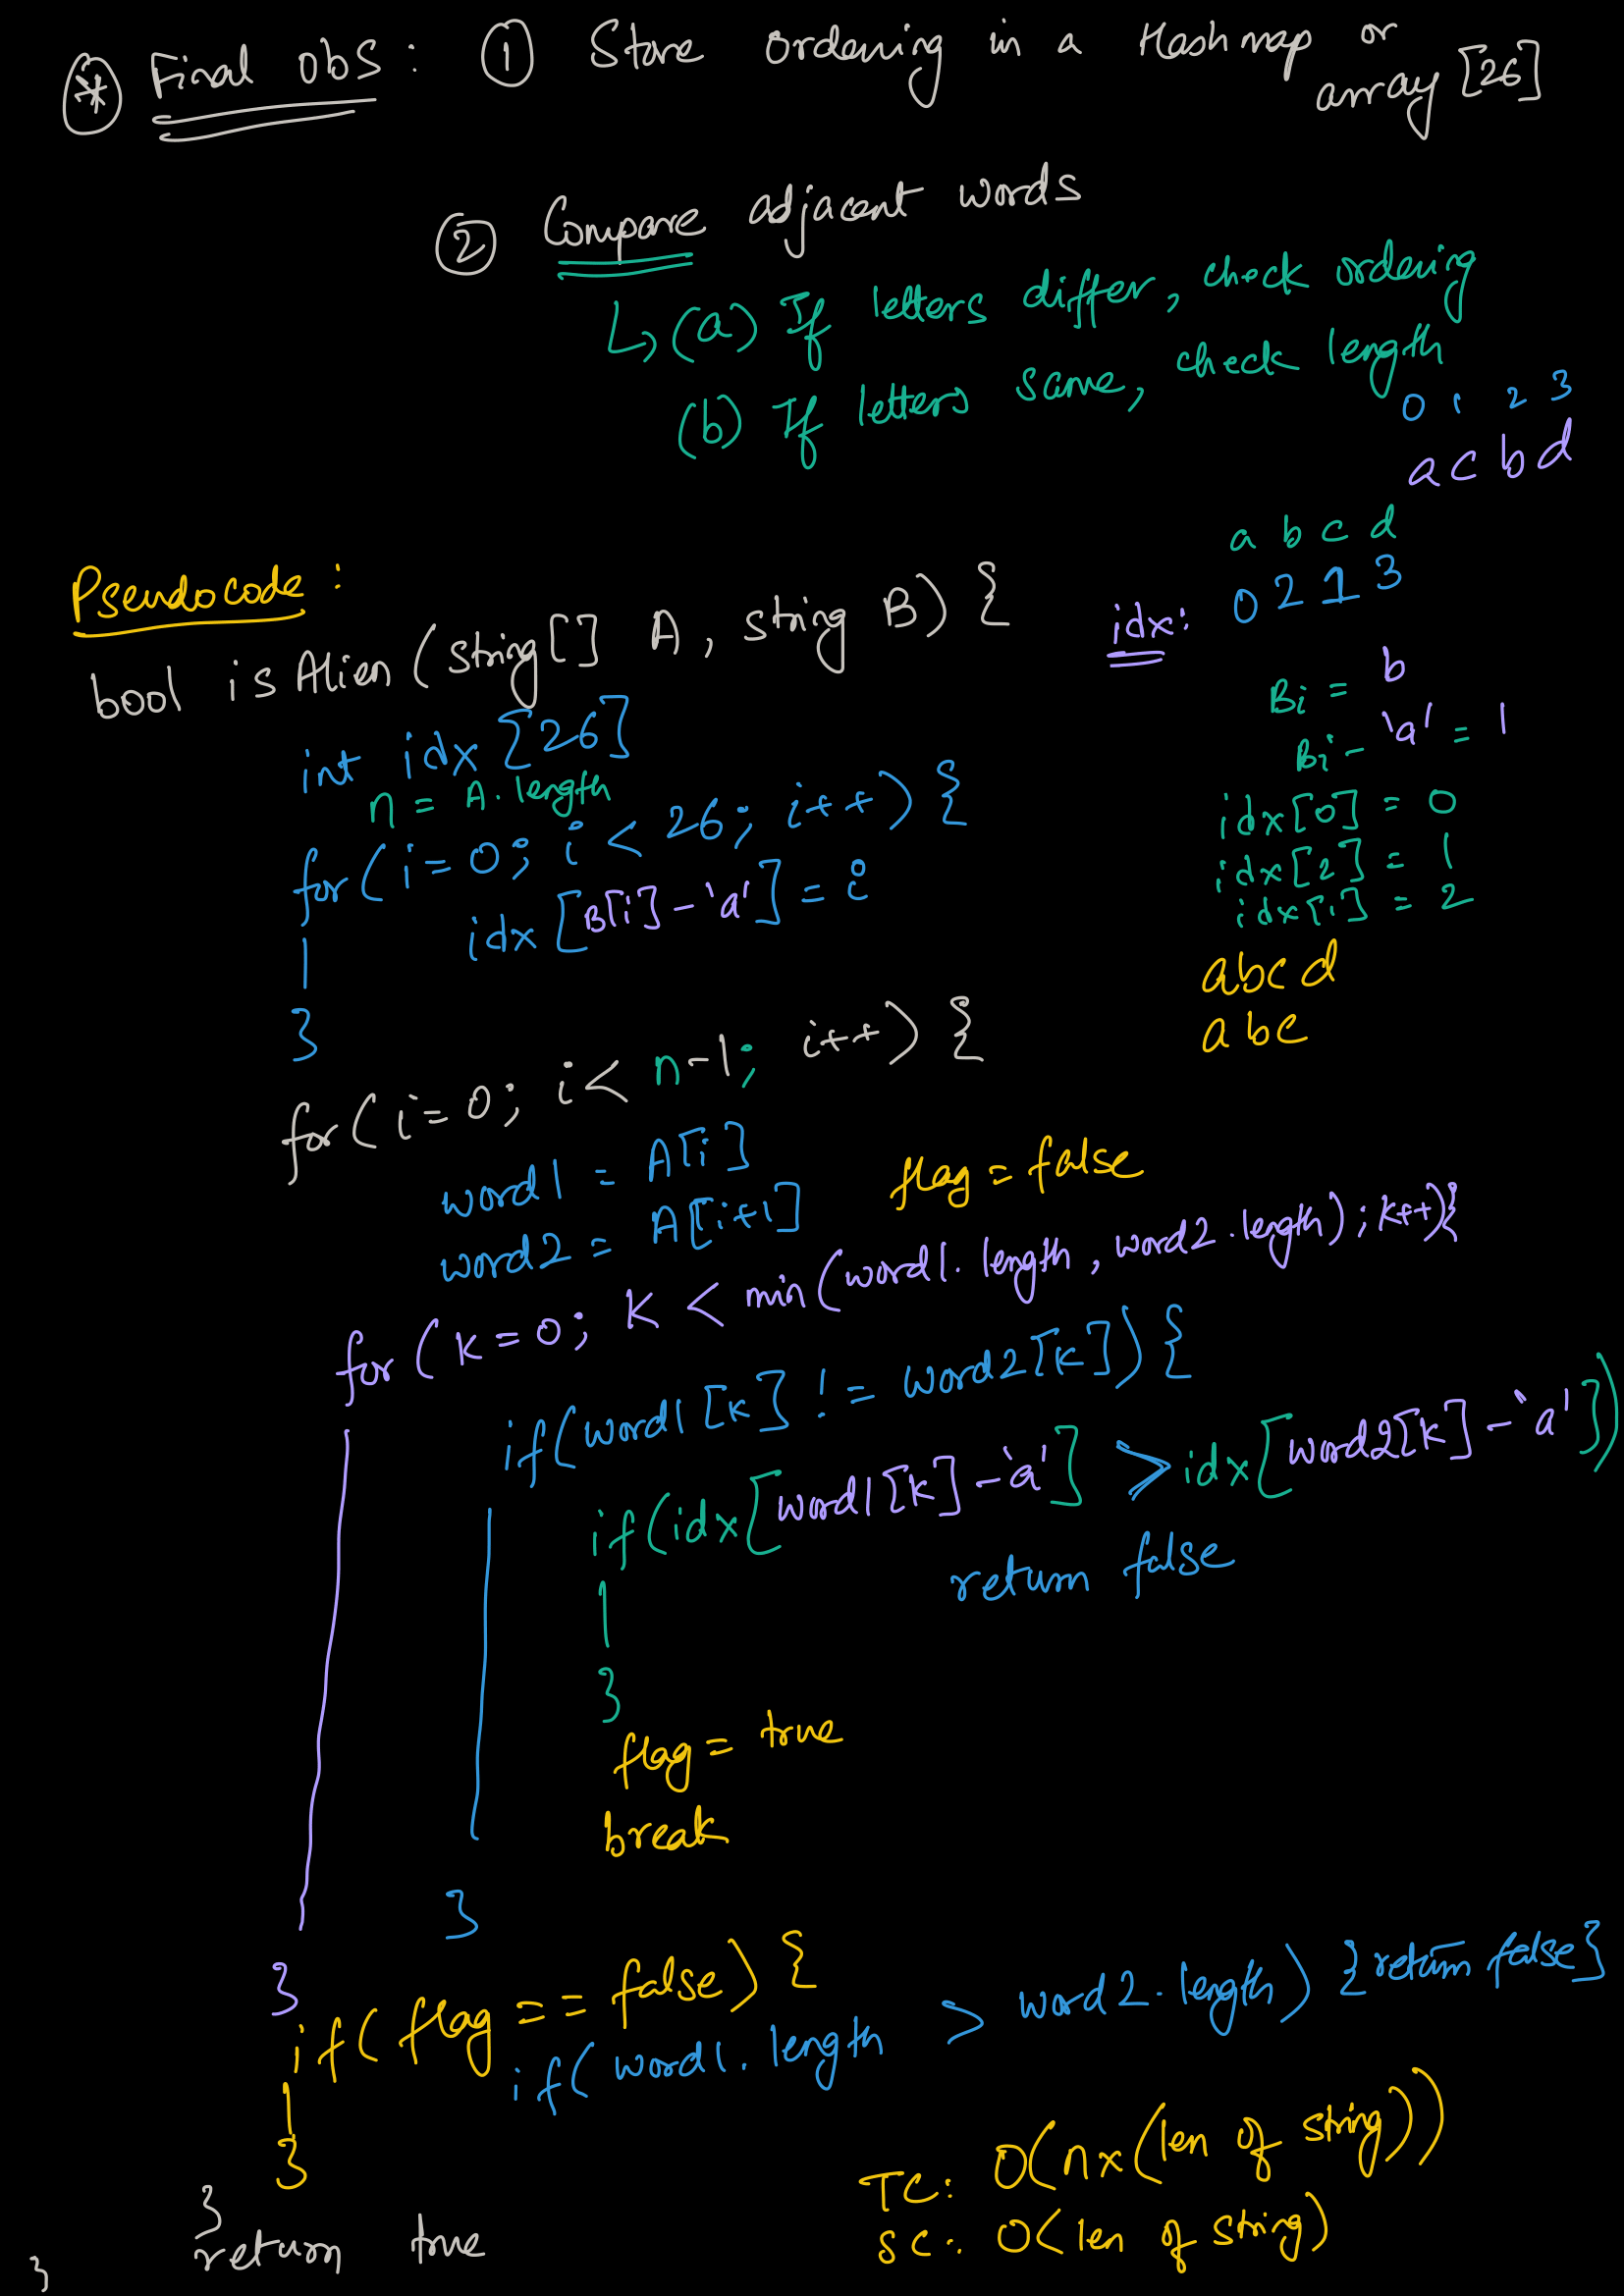 * Final Obs : ① Store Ordering in a Hashmap or
array [26]
② Compare adjacent words
↳ (a) If letters differ, check ordering
(b) If letters same, check length
0 1 2 3
a c b d
a b c d
idx: 0 2 1 3
Pseudocode :
bool isAlien (string[] A, string B) {
Bi = b
Bi - 'a' = 1
int idx [26]
n = A.length
idx[0] = 0
idx[2] = 1
idx[1] = 2
for (i=0; i < 26; i++) {
idx [B[i] - 'a'] = i
}
abcd
abc
for (i=0; i < n-1; i++) {
word1 = A[i]
word2 = A[i+1]
flag = false
for (k=0; k < min(word1.length, word2.length); k++){
if(word1[k] != word2[k]) {
if(idx[word1[k] - 'a'] > idx[word2[k] - 'a'])
return false
}
flag = true
break
}
}
if(flag == false) {
if(word1.length > word2.length) {return false}
}
TC: O(n x (len of string))
}
SC: O(len of string)
return true
}